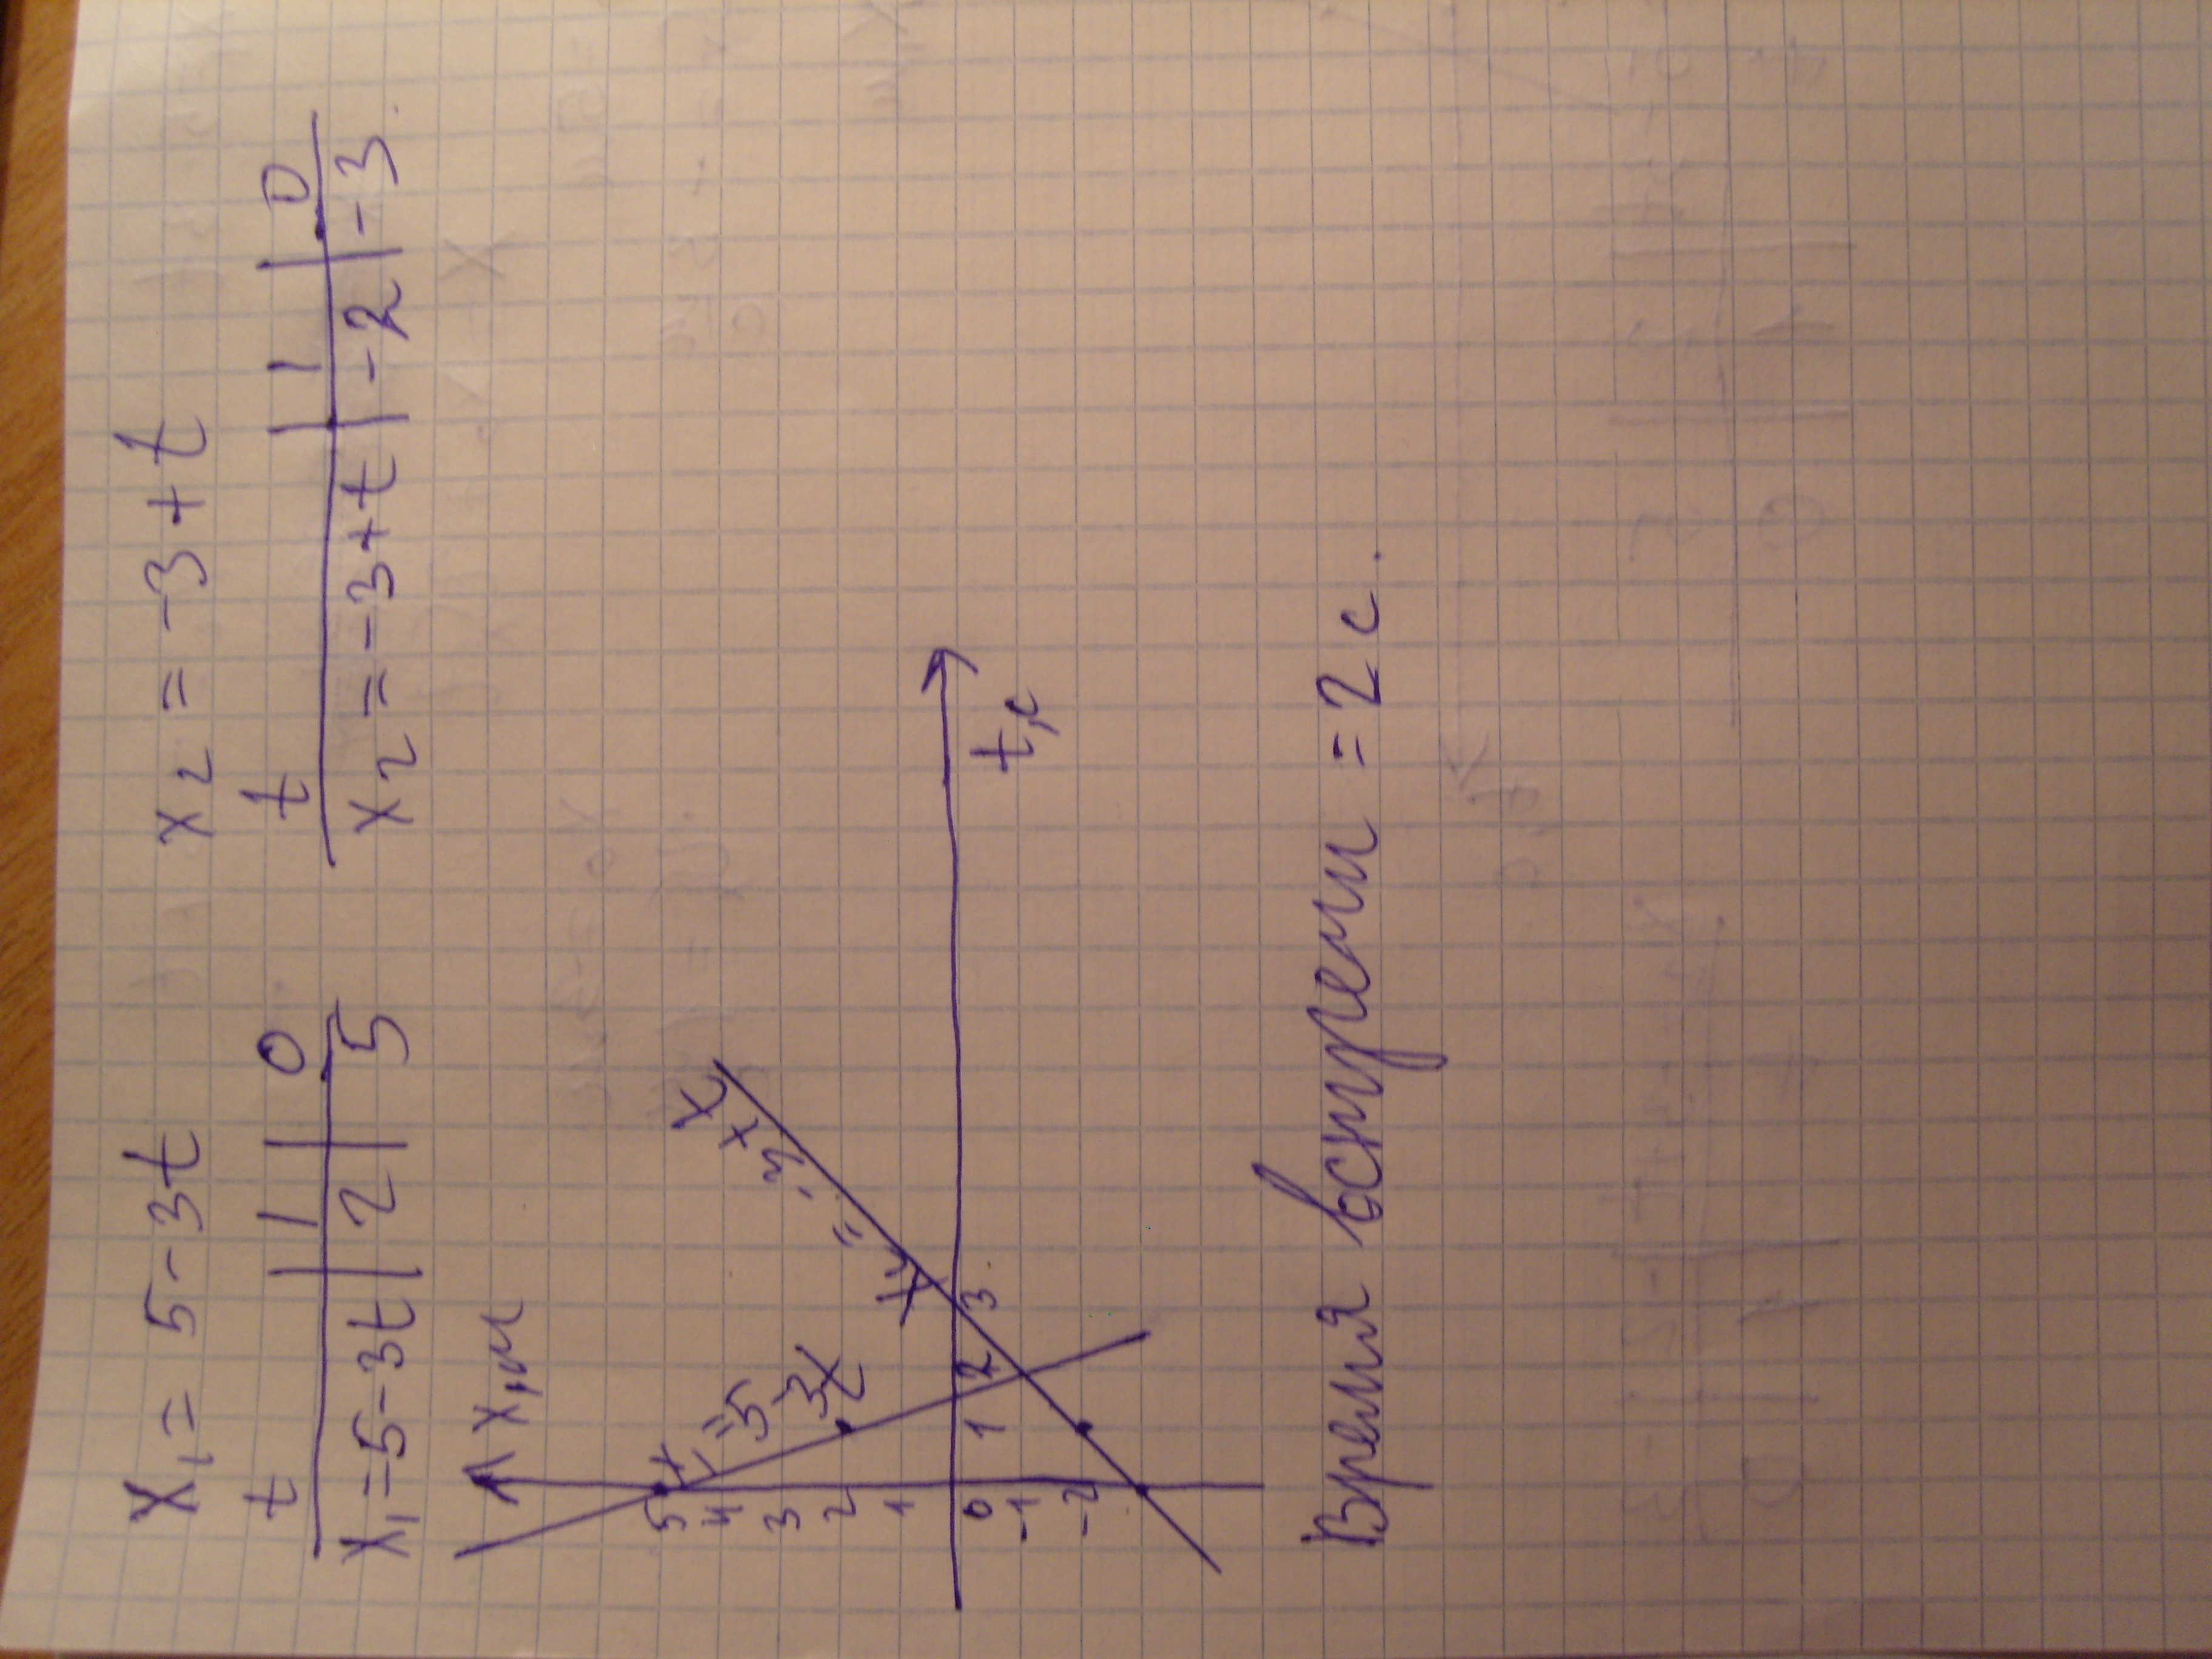 x₁ = 5 - 3t    x₂ = -3 + t
t | 1 | 0    t | 1 | 0
x₁ = 5 - 3t | 2 | 5    x₂ = -3 + t | -2 | -3.
x, м
5
4
3
2
1
0 1 2 3 t, с
-1
-2
x₁ = 5 - 3t
x₂ = -3 + t
Время встречи = 2 с.